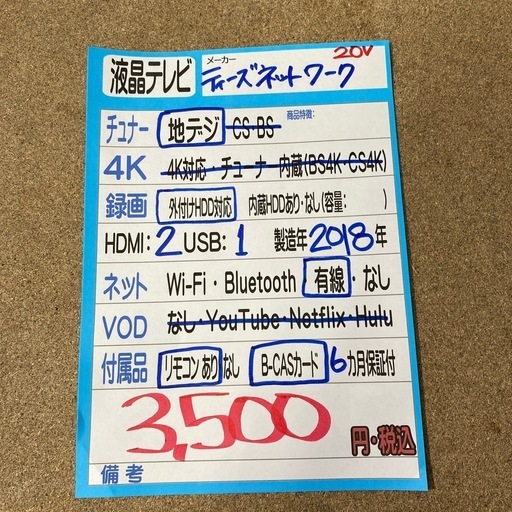 20V
液晶テレビ メーカー ティーズネットワーク
チュナー 地デジ・CS・BS 商品特徴:
4K 4K対応・チューナー内蔵(BS4K・CS4K)
録画 外付けHDD対応 内蔵HDDあり・なし(容量: )
HDMI:2 USB:1 製造年2018年
ネット Wi-Fi・Bluetooth 有線・なし
VOD なし・YouTube・Notflix・Hulu
付属品 リモコン あり なし B-CASカード 6カ月保証付
3,500 円・税込
備考